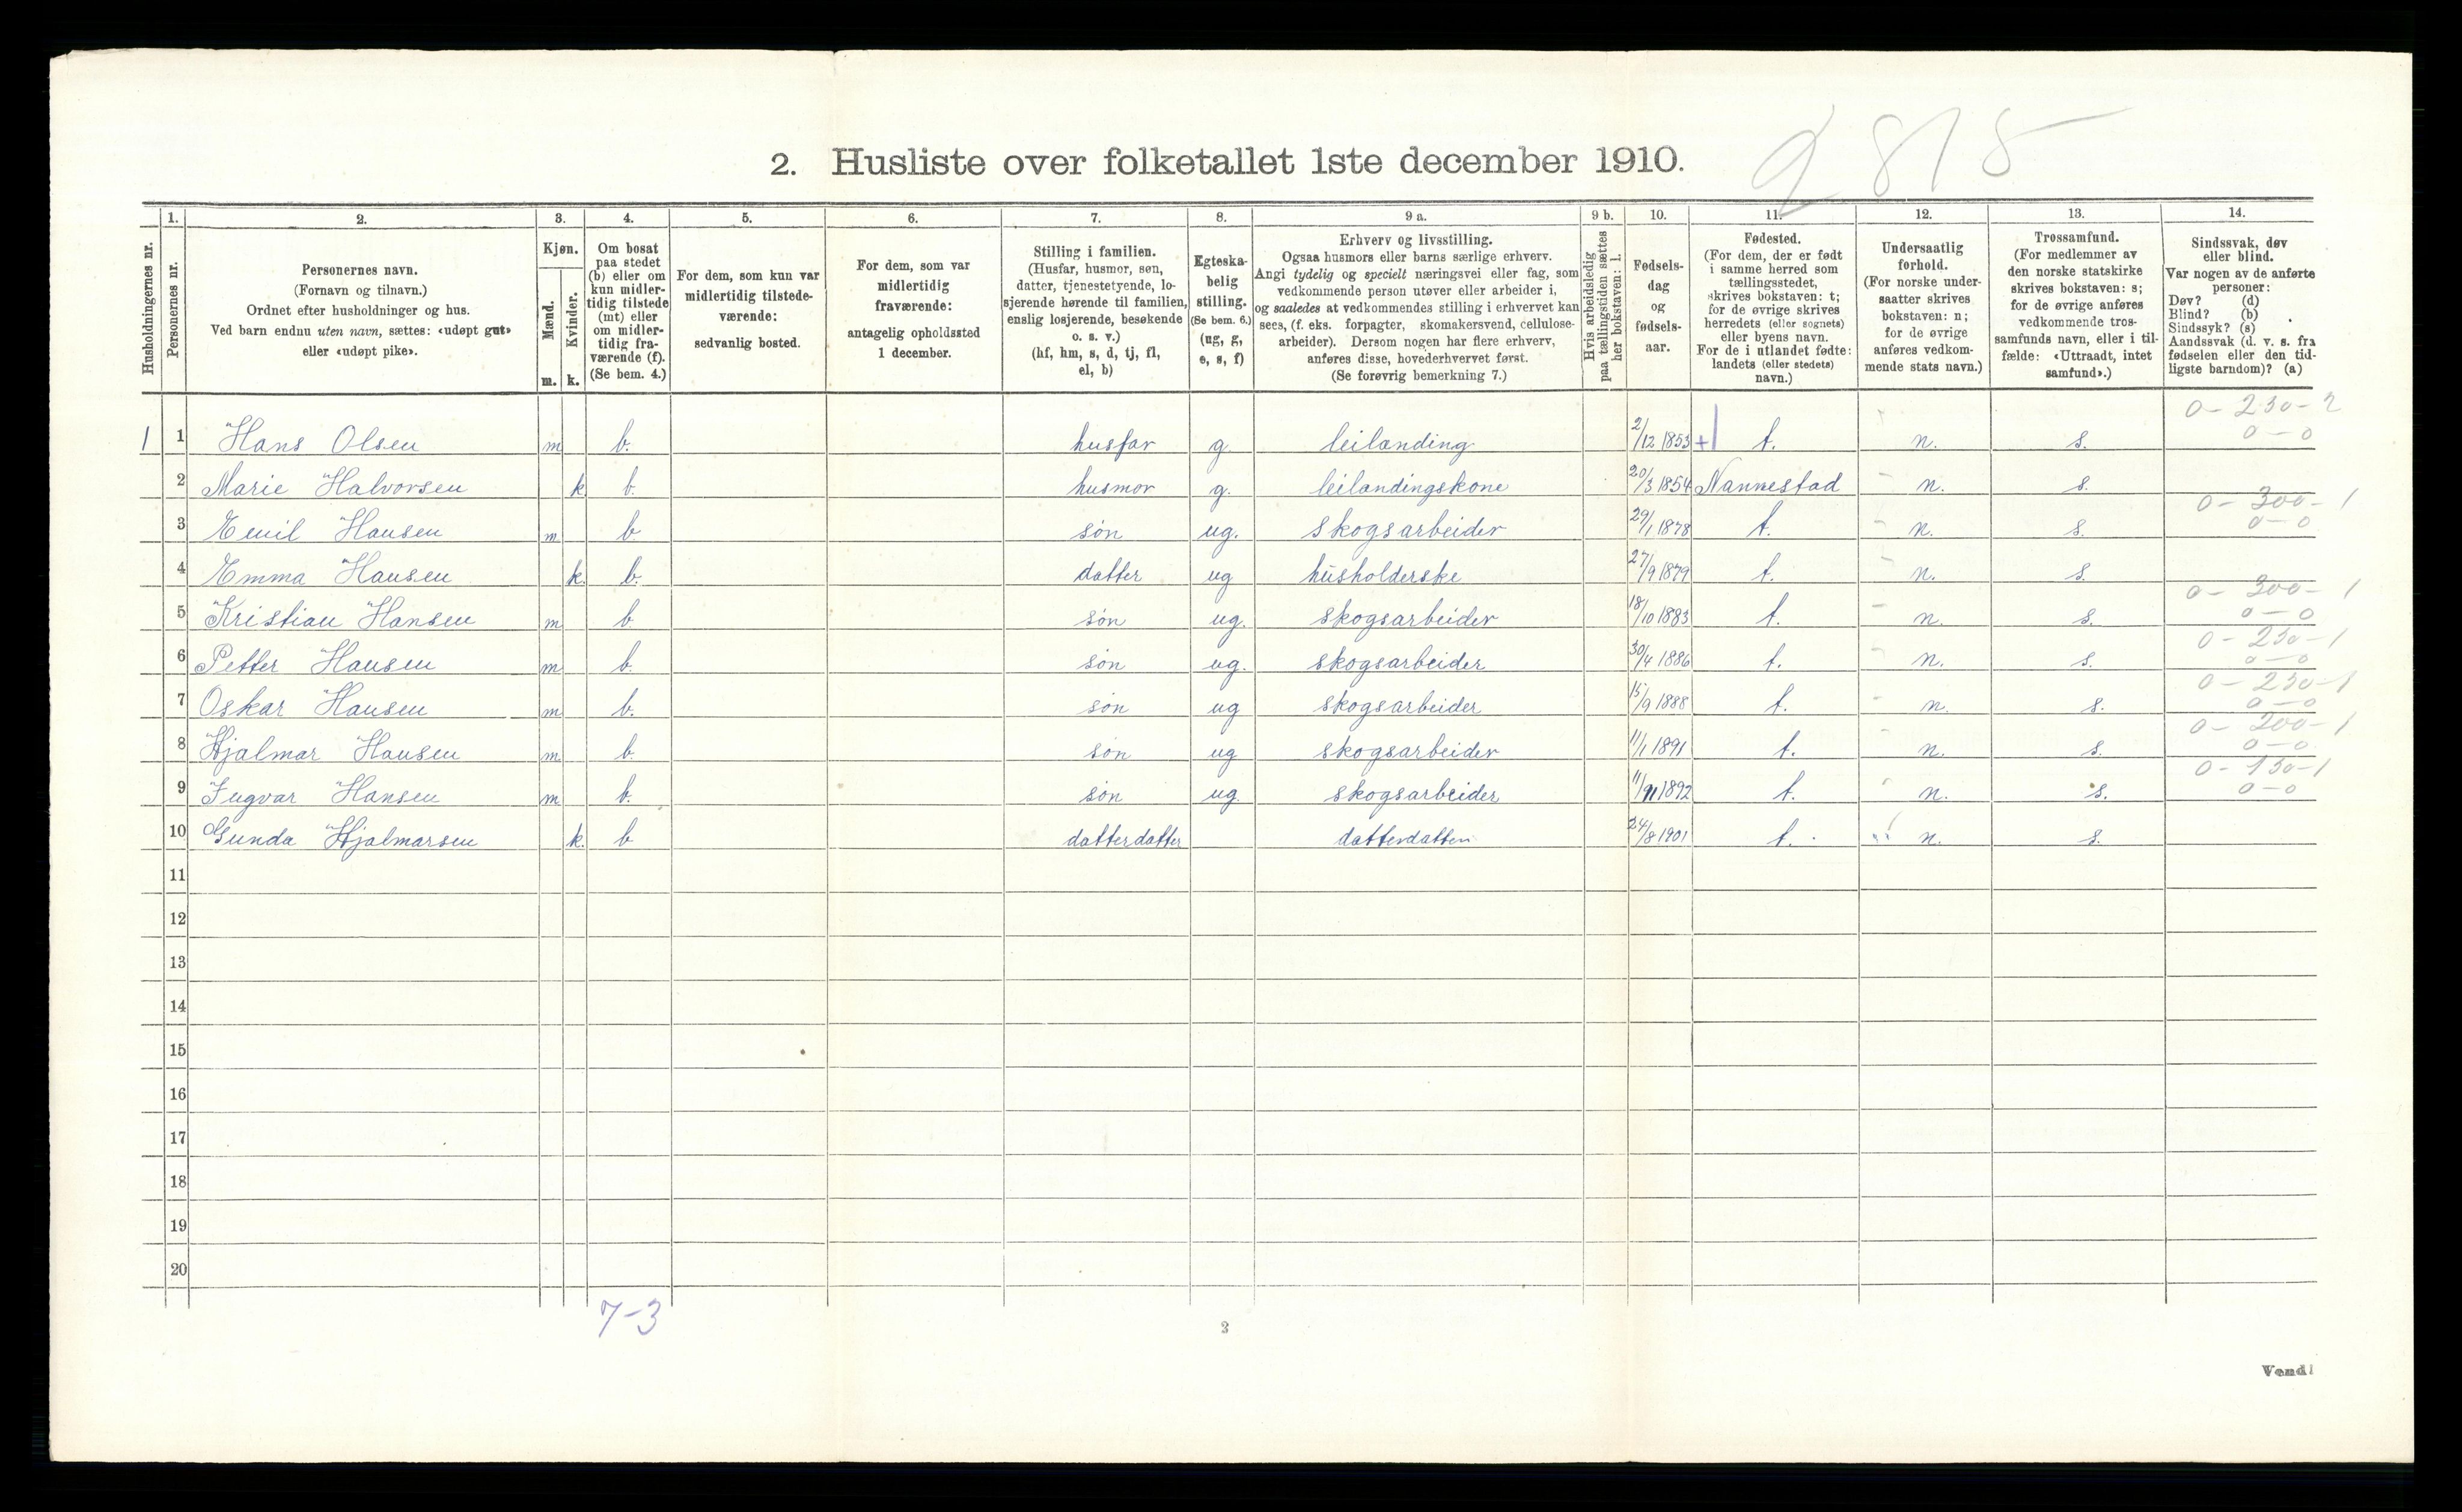 2815
2. Husliste over folketallet 1ste december 1910.
1. 2. 3. 4. 5. 6. 7. 8. 9 a. 9 b. 10. 11. 12. 13. 14.
Husholdningernes nr.
Personernes nr.
Personernes navn.
(Fornavn og tilnavn.)
Ordnet efter husholdninger og hus.
Ved barn endnu uten navn, sættes: «udøpt gut»
eller «udøpt pike».
Kjøn.
Mænd.
Kvinder.
m. k.
Om bosat
paa stedet
(b) eller om
kun midler-
tidig tilstede
(mt) eller
om midler-
tidig fra-
værende (f).
(Se bem. 4.)
For dem, som kun var
midlertidig tilstede-
værende:
sedvanlig bosted.
For dem, som var
midlertidig
fraværende:
antagelig opholdssted
1 december.
Stilling i familien.
(Husfar, husmor, søn,
datter, tjenestetyende, lo-
sjerende hørende til familien,
enslig losjerende, besøkende
o. s. v.)
(hf, hm, s, d, tj, fl,
el, b)
Egteska-
belig
stilling.
(Se bem. 6.)
(ug, g,
e, s, f)
Erhverv og livsstilling.
Ogsaa husmors eller barns særlige erhverv.
Angi tydelig og specielt næringsvei eller fag, som
vedkommende person utøver eller arbeider i,
og saaledes at vedkommendes stilling i erhvervet kan
sees, (f. eks. forpagter, skomakersvend, cellulose-
arbeider). Dersom nogen har flere erhverv,
anføres disse, hovederhvervet først.
(Se forøvrig bemerkning 7.)
Hvis arbeidsledig
paa tællingstiden sættes
her bokstaven: l.
Fødsels-
dag
og
fødsels-
aar.
Fødested.
(For dem, der er født
i samme herred som
tællingsstedet,
skrives bokstaven: t;
for de øvrige skrives
herredets (eller sognets)
eller byens navn.
For de i utlandet fødte:
landets (eller stedets)
navn.)
Undersaatlig
forhold.
(For norske under-
saatter skrives
bokstaven: n;
for de øvrige
anføres vedkom-
mende stats navn.)
Trossamfund.
(For medlemmer av
den norske statskirke
skrives bokstaven: s;
for de øvrige anføres
vedkommende tros-
samfunds navn, eller i til-
fælde: «Uttraadt, intet
samfund».)
Sindssvak, døv
eller blind.
Var nogen av de anførte
personer:
Døv? (d)
Blind? (b)
Sindssyk? (s)
Aandssvak (d. v. s. fra
fødselen eller den tid-
ligste barndom)? (a)
0 - 230 - 2
1 1 Hans Olsen m b. husfar g. leilænding 2/12 1853 +1 t. n. s. 0 - 0
2 Marie Halvorsen k b. husmor g. leilændingskone 20/3 1854 Nannestad n. s.
0 - 300 - 1
3 Emil Hansen m b søn ug. skogsarbeider 29/1 1878 t. n. s. 0 - 0
4 Emma Hansen k. b. datter ug husholderske 27/9 1879 t. n. s.
0 - 300 - 1
5 Kristian Hansen m b søn ug. skogsarbeider 18/10 1883 t. n. s. 0 - 0
0 - 250 - 1
6 Petter Hansen m b. søn ug. skogsarbeider 30/4 1886 t. n. s. 0 - 0
0 - 250 - 1
7 Oskar Hansen m b. søn ug skogsarbeider 15/9 1888 t. n. s. 0 - 0
0 - 200 - 1
8 Hjalmar Hansen m b. søn ug skogsarbeider 11/1 1891 t. n. s. 0 - 0
0 - 150 - 1
9 Ingvar Hansen m b. søn ug. skogsarbeider 11/11 1892 t. n. s. 0 - 0
10 Gunda Hjalmarsen k. b datterdatter datterdatter 24/8 1901 t. n. s.
11
12
13
14
15
16
17
18
19
20
7-3
3
Vend!